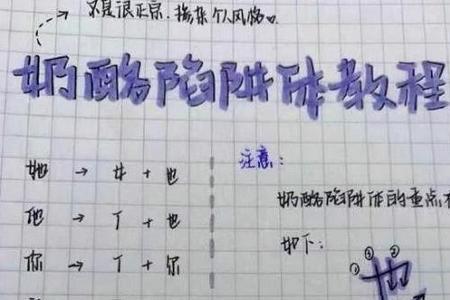 不是很正宗，掺杂个人风格。
奶酪陷阱体教程
她 → 女 + 也
他 → 亻 + 也
你 → 亻 + 尔
注意：
奶酪陷阱体的重点
如下：
① ②
③ 也